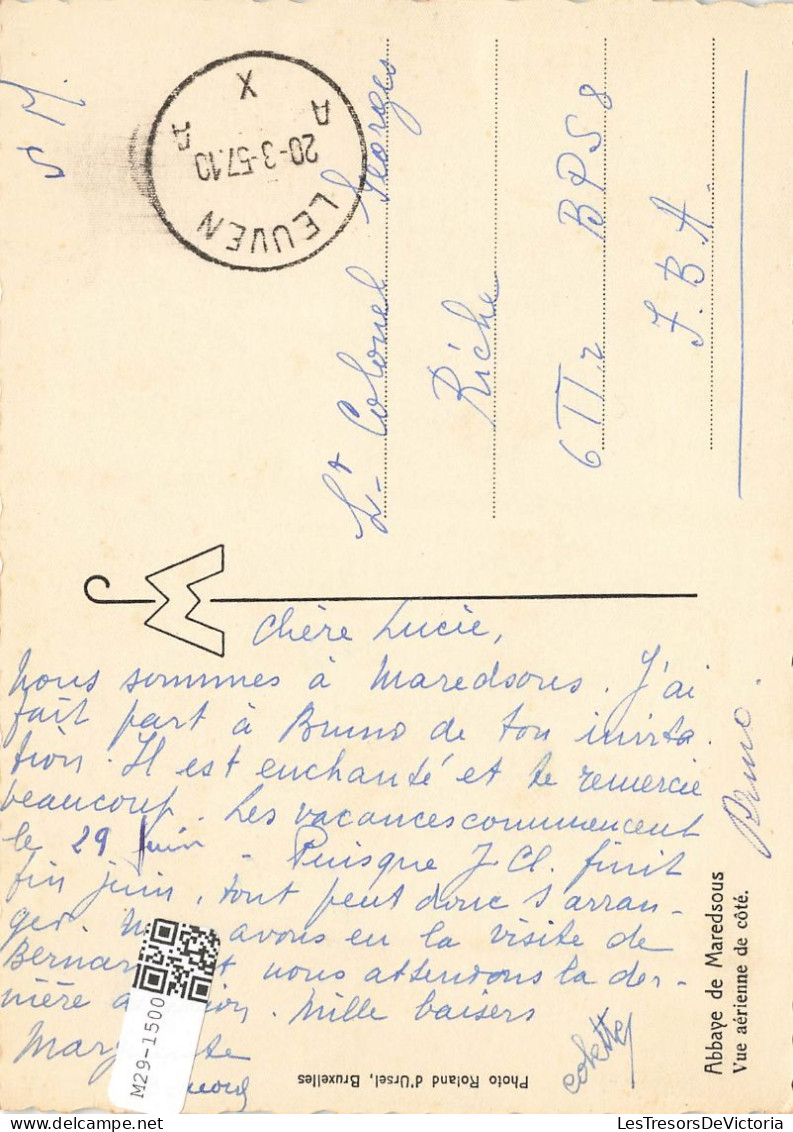 S M.
LEUVEN
20-3-57.10
A X A
Lt Colonel Georges
Riche
6 TTr BPS 8
F.B.A.
Chère Lucie,
Nous sommes à Maredsous. J'ai
fait part à Bruno de ton invita
tion. Il est enchanté et te remercie
beaucoup. Les vacances commencent
le 29 juin - Puisque J. Cl. finit
fin juin, tout peut donc s'arran-
ger. avons eu la visite de
Bernar t nous attendons la der-
nière a ion. Mille baisers
Marg te
Bruno.
colette
Abbaye de Maredsous
Vue aérienne de côté.
Photo Roland d'Ursel, Bruxelles
M29-1500
LesTresorsDeVictoria.com